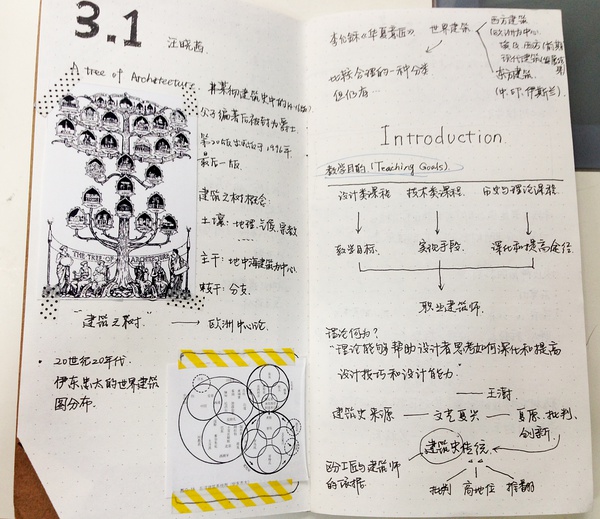 3.1
汪晓茜
A tree of Architecture
弗莱彻建筑史中的
父子编著后被封为爵士
第20版出版于1996年.
最后一版.
建筑之树概论:
土壤: 地理, 气候, 宗教
主干: 地中海建筑为中心.
枝干: 分支.
THE TREE OF ARCHITECTURE
"建筑之树" → 欧洲中心论.
• 20世纪20年代.
伊东忠太的世界建筑
图分布.
李允鉌《华夏意匠》
世界建筑
西方建筑
(欧洲为中心
埃及 西方 前期
现代建筑
东方建筑
(中.印.伊斯兰)
比较合理的一种分类
但仍有…
Introduction
教学目的 (Teaching Goals)
设计类课程 技术类课程 历史与理论课程
教学目标 实现手段 深化和提高途径
职业建筑师
理论何为?
"理论能够帮助设计者思考如何深化和提高
设计技巧和设计能力."
——王澍.
建筑史来源 — 文艺复兴 — 复原、批判、
创新.
建筑史传统
区分工匠与建筑师
的依据.
批判 高地位 推翻